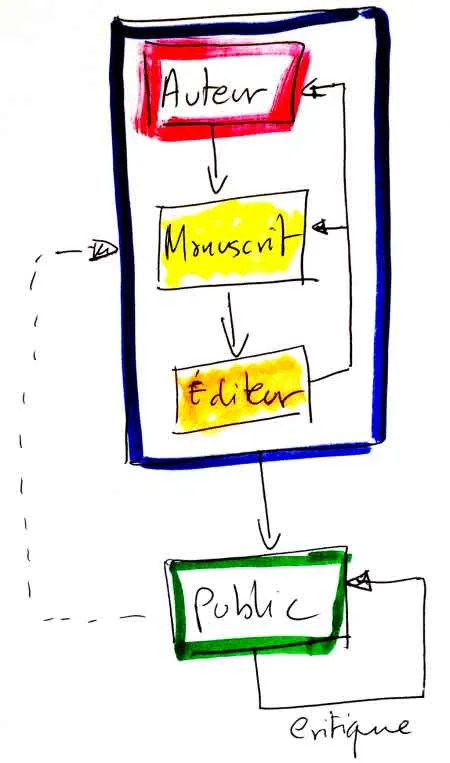 Auteur
Manuscrit
Éditeur
Public
critique